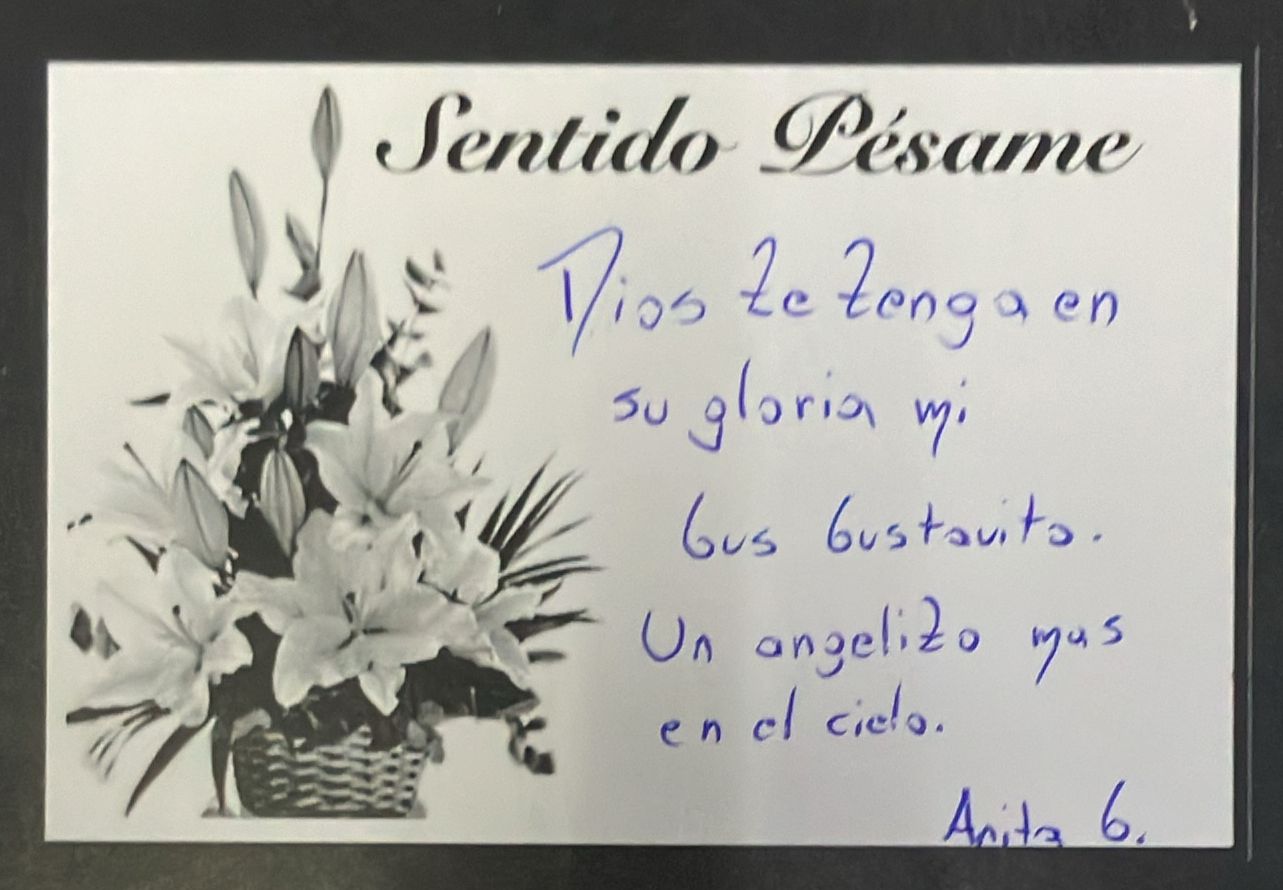 Sentido Pésame
Dios te tenga en
su gloria mi
Gus Gustavito.
Un angelito mas
en el cielo.
Anita G.